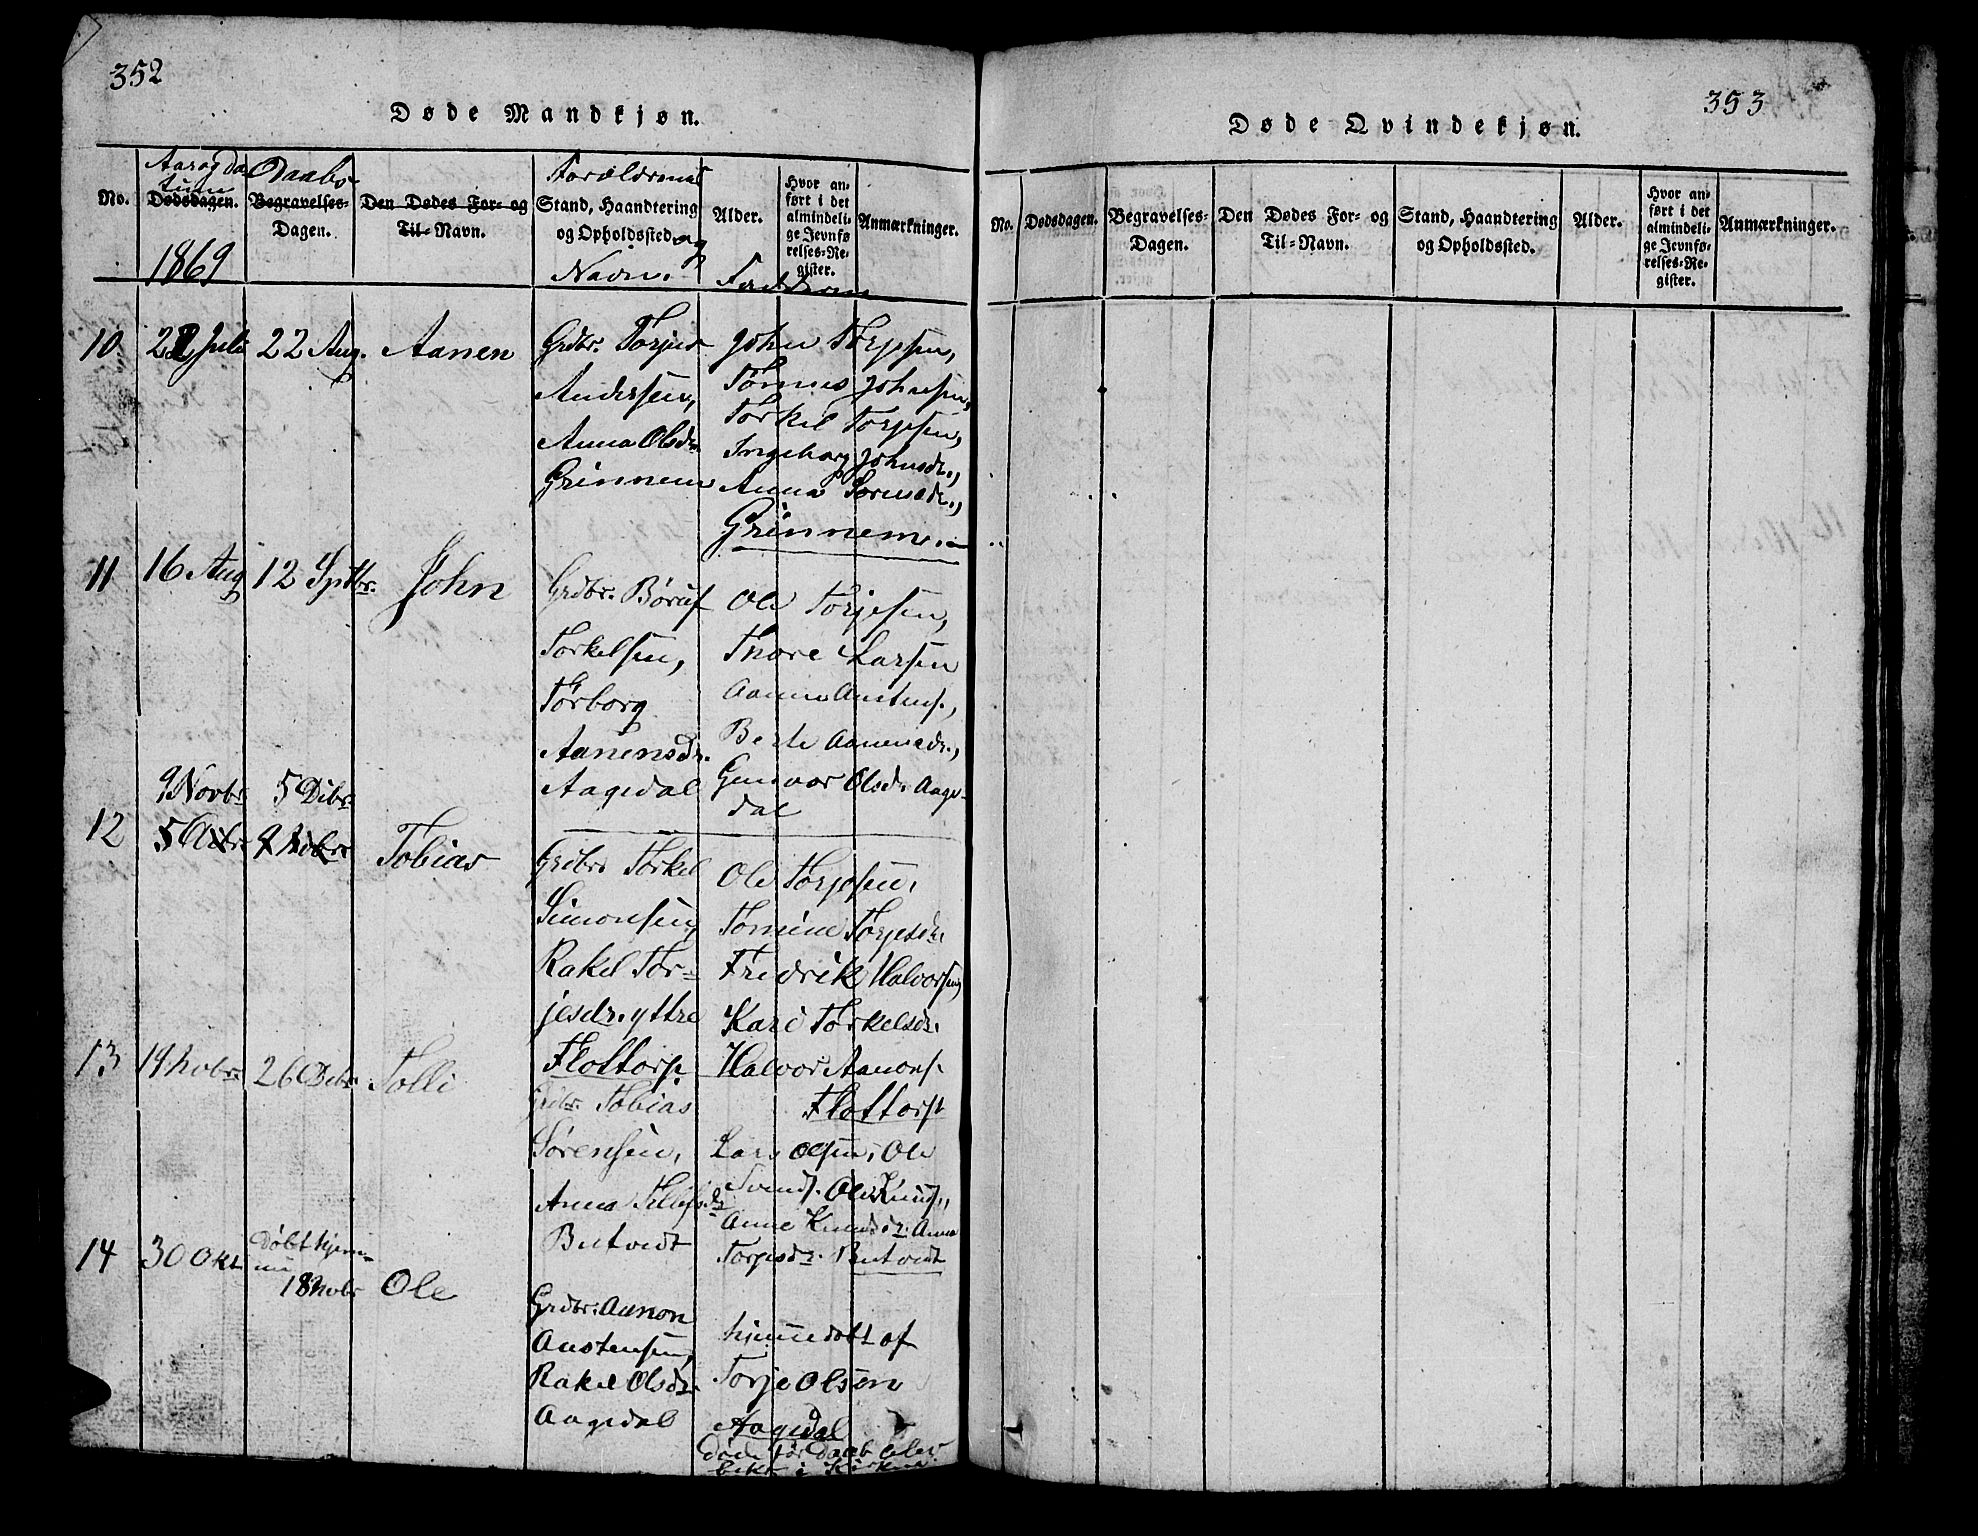 352
Døde Mandkjøn.
No.
Aar og Da
tum
Dødsdagen.
1869
Daabs-
Begravelses-
Dagen.
Den Dødes For- og
Til-Navn.
Forældrenes
Stand, Haandtering
og Opholdssted og
Navn.
Alder.
Hvor an-
ført i det
almindeli-
ge Jevnfø
relses-Re-
gister.
Anmærkninger.
Faddrene
10
Juli
22 Aug.
Aanen
Grdbr. Torjus
Andersen,
Anna Olsdr
Grinnem
John Torjesen,
Tønnes Johnsen,
Torkel Torjesen,
Ingeborg Johnsdr.,
Anna
Grinnem.
11
16 Aug
12 Septbr.
John
Grdbr. Børuf
Torkelsen,
Tørborg
Aanensdr.
Aagedal
Ole Torjesen,
Thore Larsen
Aanen Austens.,
Berte Aanensdr.,
Gunvor Olsdr. Aage-
dal
12
9 Novbr
5 Dcbr
Tobias
Grdbr. Torkel
Simonsen,
Rakel Tor-
jesdr. yttre
Flottorp.
Ole Torjesen,
Tomine Torjesdr.
Fredrik Halvorsen,
Kari Torkelsdr.
Halvor Aanons.
Flottorp
13
19 Novbr.
26 Dcbr
Tolli
Grdbr. Tobias
Sørensen,
Anna Tellefsdr
Butvedt
Lars Olsen, Ole
Svends. Ole Knuds.,
Anne Knudsdr. Anna
Torjesdr. Butvedt
14
30 Okt
Døbt hjem-
me
18 Novbr
Ole
Grdbr. Aanon
Austensen,
Rakel Olsdr.
Aagedal
hjemmedøbt af
Torje Olsen
Aagedal
Døde før Daab blev
bekr. i Kirken
353
Døde Qvindekjøn.
No.
Dødsdagen.
Begravelses-
Dagen.
Den Dødes For- og
Til-Navn.
Stand, Haandtering
og Opholdssted.
Alder.
Hvor an-
ført i det
almindeli-
ge Jevnfø-
relses-Re-
gister.
Anmærkninger.